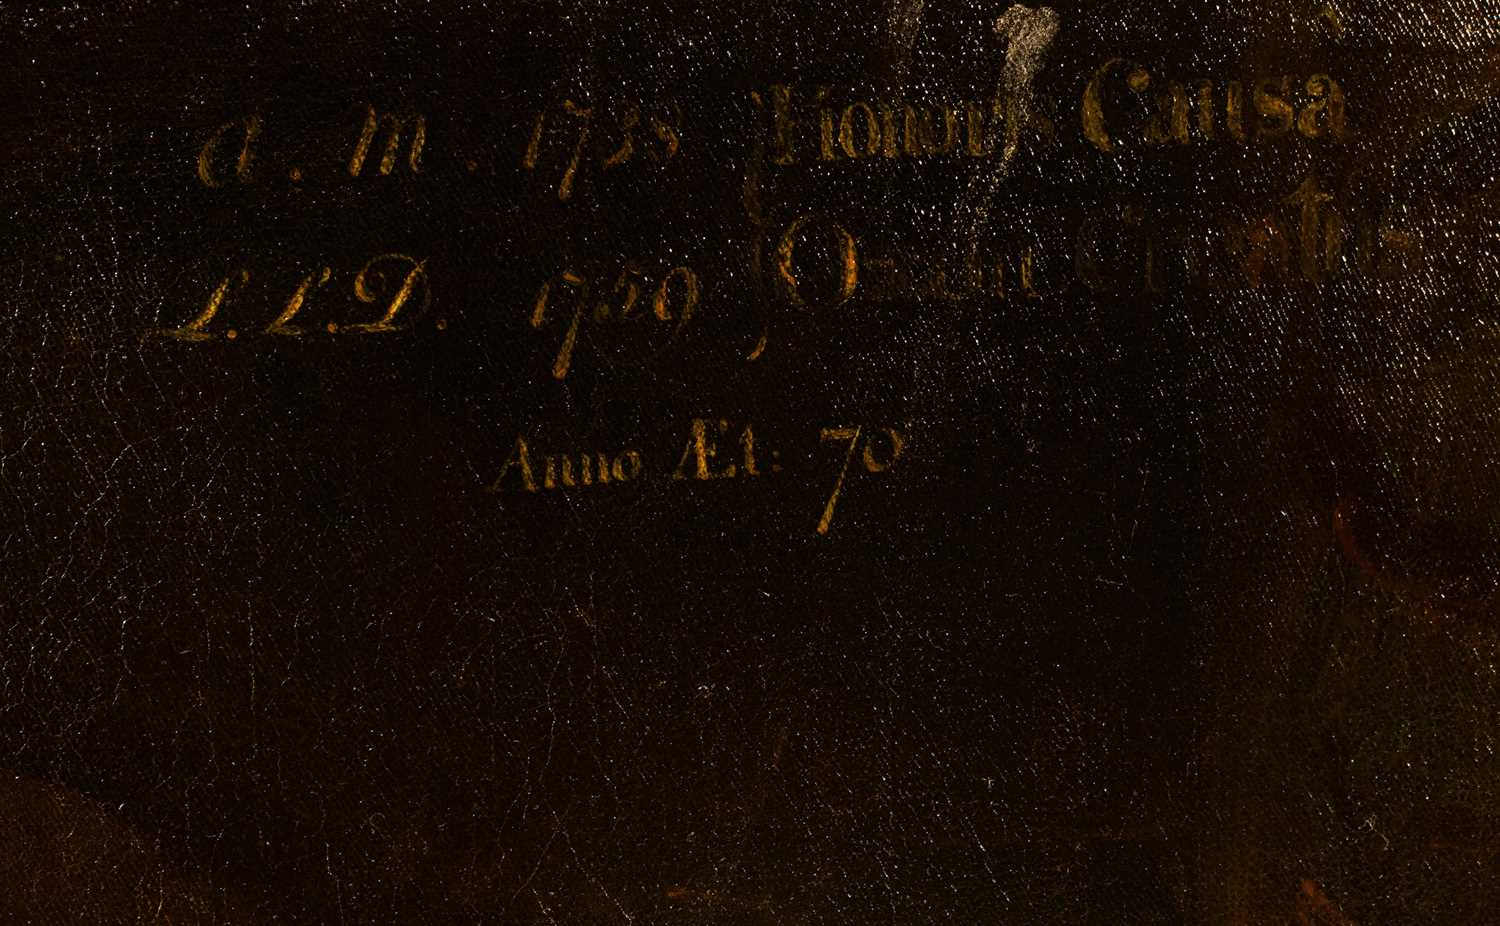 A . M . 1738 Honoris Causa
L.L.D. 1759 Omni Gratis
Anno Æt: 70